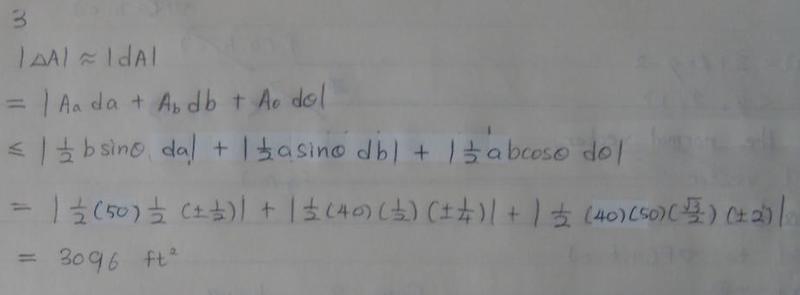 3
|△A| ≈ |dA|
= | Aa da + Ab db + Aθ dθ|
≤ | ½ b sinθ da| + | ½ a sinθ db| + | ½ ab cosθ dθ|
= | ½ (50) ½ (± ½)| + | ½ (40) (½) (± ¼)| + | ½ (40)(50)(√3/2) (± 2)|
= 3096 ft²